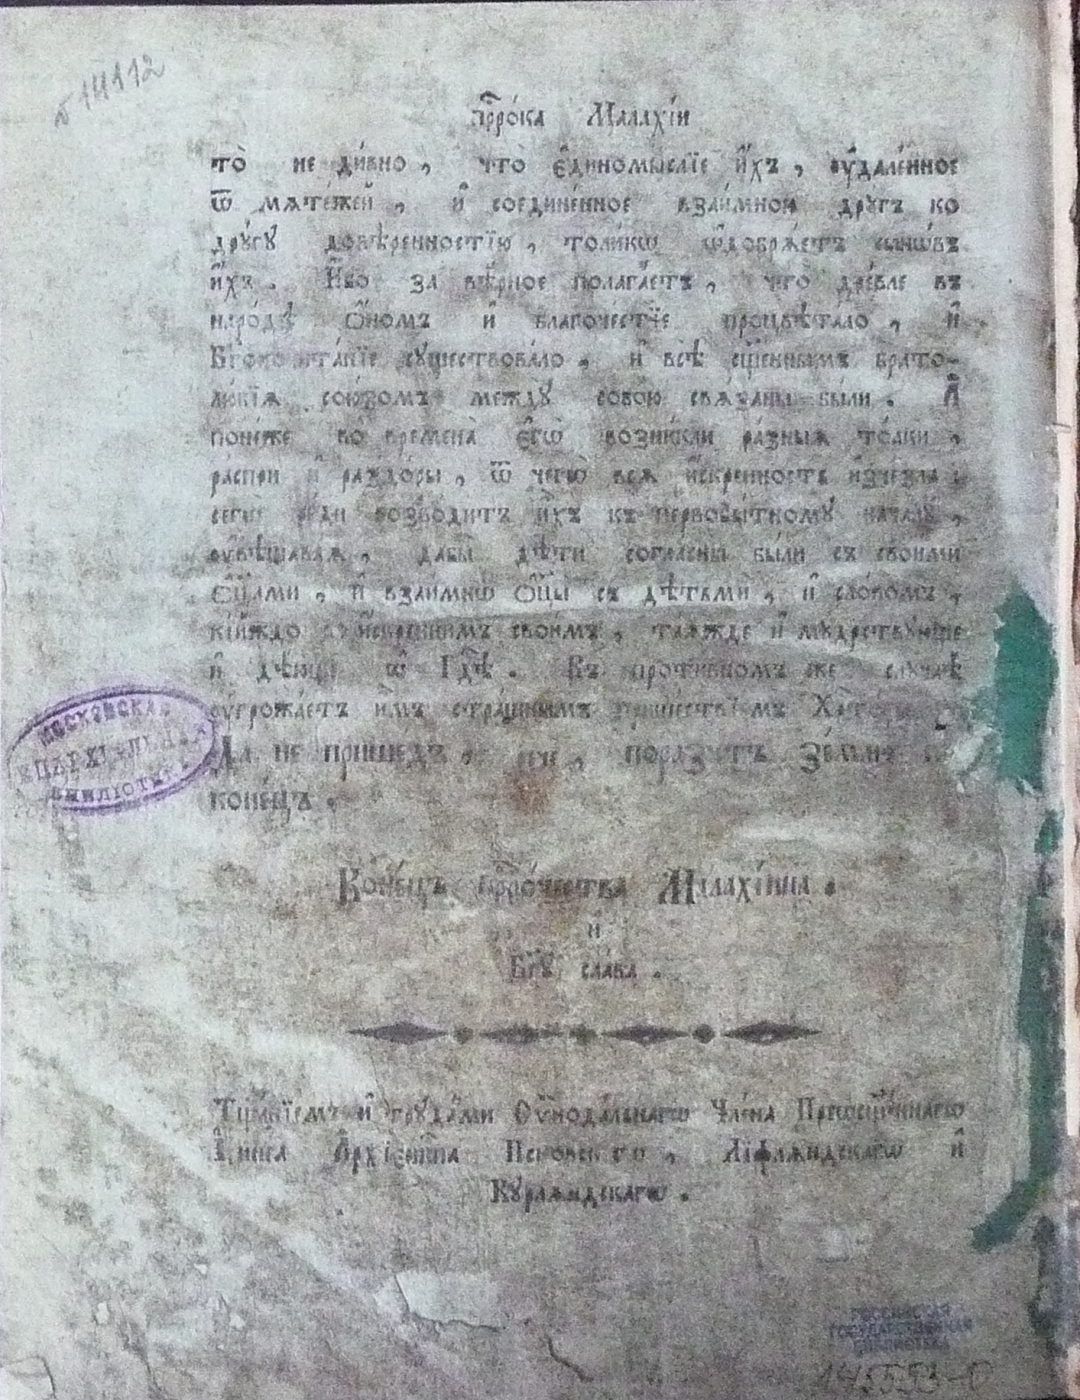 б 14112
прⷪ҇ро́ка Малахі́и
то̀ не ди́вно, что̀ є҆диномы́слїе и҆́хъ, ᲂу҆дале́нное
ѿ мѧте́жей, и҆ соедине́нное взаи́мною дрꙋ́гъ ко
дрꙋ́гꙋ довѣ́ренностїю, толи́кѡ ѡ҆добрѧ́етъ сынѡ́въ
и҆́хъ. И҆́бо за вѣ́рное полага́етъ, что̀ дре́вле въ
наро́дѣ ѻ҆́номъ и҆ благоче́стїе процвѣта́ло, и҆
Бг҃опочита́нїе сꙋществова́ло, и҆ всѣ̀ сщ҃е́ннымъ брато-
лю́бїѧ сою́зомъ междꙋ̀ собо́ю свѧ́заны бы́ли. А҆
поне́же во времена̀ є҆гѡ̀ возни́кли ра́зныѧ то́лки,
ра́спри и҆ раздо́ры, ѿ чегѡ̀ всѧ̀ и҆́скренность и҆зче́зла:
сегѡ̀ ра́ди возво́дитъ и҆́хъ къ первобы́тномꙋ нача́лꙋ,
ᲂу҆вѣщава́ѧ, дабы̀ дѣ́ти согла́сны бы́ли съ свои́ми
Ѻ҆ц҃а́ми, и҆ взаи́мнѡ Ѻ҆ц҃ы̀ съ дѣтьмѝ, и҆ сло́вомъ,
кі́йждо со и҆́скреннимъ свои́мъ, та́ѧжде и҆ мꙋ́дрствꙋюще
и҆ дѣ́юще ѡ҆ Гд҇ѣ. Въ проти́вномъ же слꙋ́чаѣ
ᲂу҆грожа́етъ и҆̀мъ стра́шнымъ прише́ствїемъ Хрⷭ҇то́вымъ
Да не прише́дъ, речѐ, поражꙋ̀ зе́млю
коне́цъ.
Коне́цъ прⷪ҇ро́чества Малахі́ина.
и҆
Бг҃ꙋ сла́ва.
Тща́нїемъ и҆ трꙋда́ми Сѵ҆нода́льнагѡ Чле́на Преѡсщ҃е́ннагѡ
А҆рхїепⷭ҇кпа Пско́вскагѡ, Лїфлѧ́ндскагѡ и҆
Кꙋрлѧ́ндскагѡ.
МОСКОВСКАЯ
ЕПАРХІАЛЬНАЯ
БИБЛІОТЕКА
РОССИЙСКАЯ
ГОСУДАРСТВЕННАЯ
БИБЛИОТЕКА